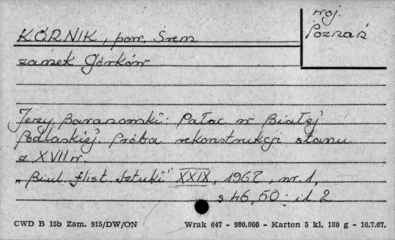 woj.
Poznań
KÓRNIK, pow. Śrem
zamek Górków
Jerzy Baranowski: Pałac w Białej
Podlaskiej. Próba rekonstrukcji stanu
z XVII w.
"Biul. Hist. Sztuki" XXIX, 1967, nr. 1,
s 46, 50; il 2
CWD B 15b Zam. 915/DW/ON Wrak 647 - 980.000 - Karton 5 kl. 180 g - 10.7.67.